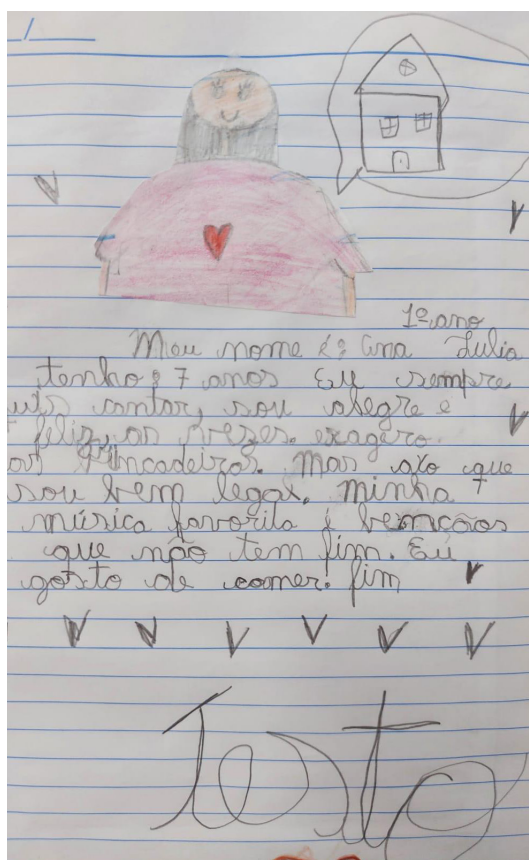 1º ano
Meu nome é: Ana Julia
tenho: 7 anos Eu sempre
uis cantar, sou alegre e
feliz, as vezes. exagero.
as brincadeiras. Mas alo que
sou bem legal. minha
música favorita é bemcãos
que não tem fim. Eu
gosto de comer. fim
Texto